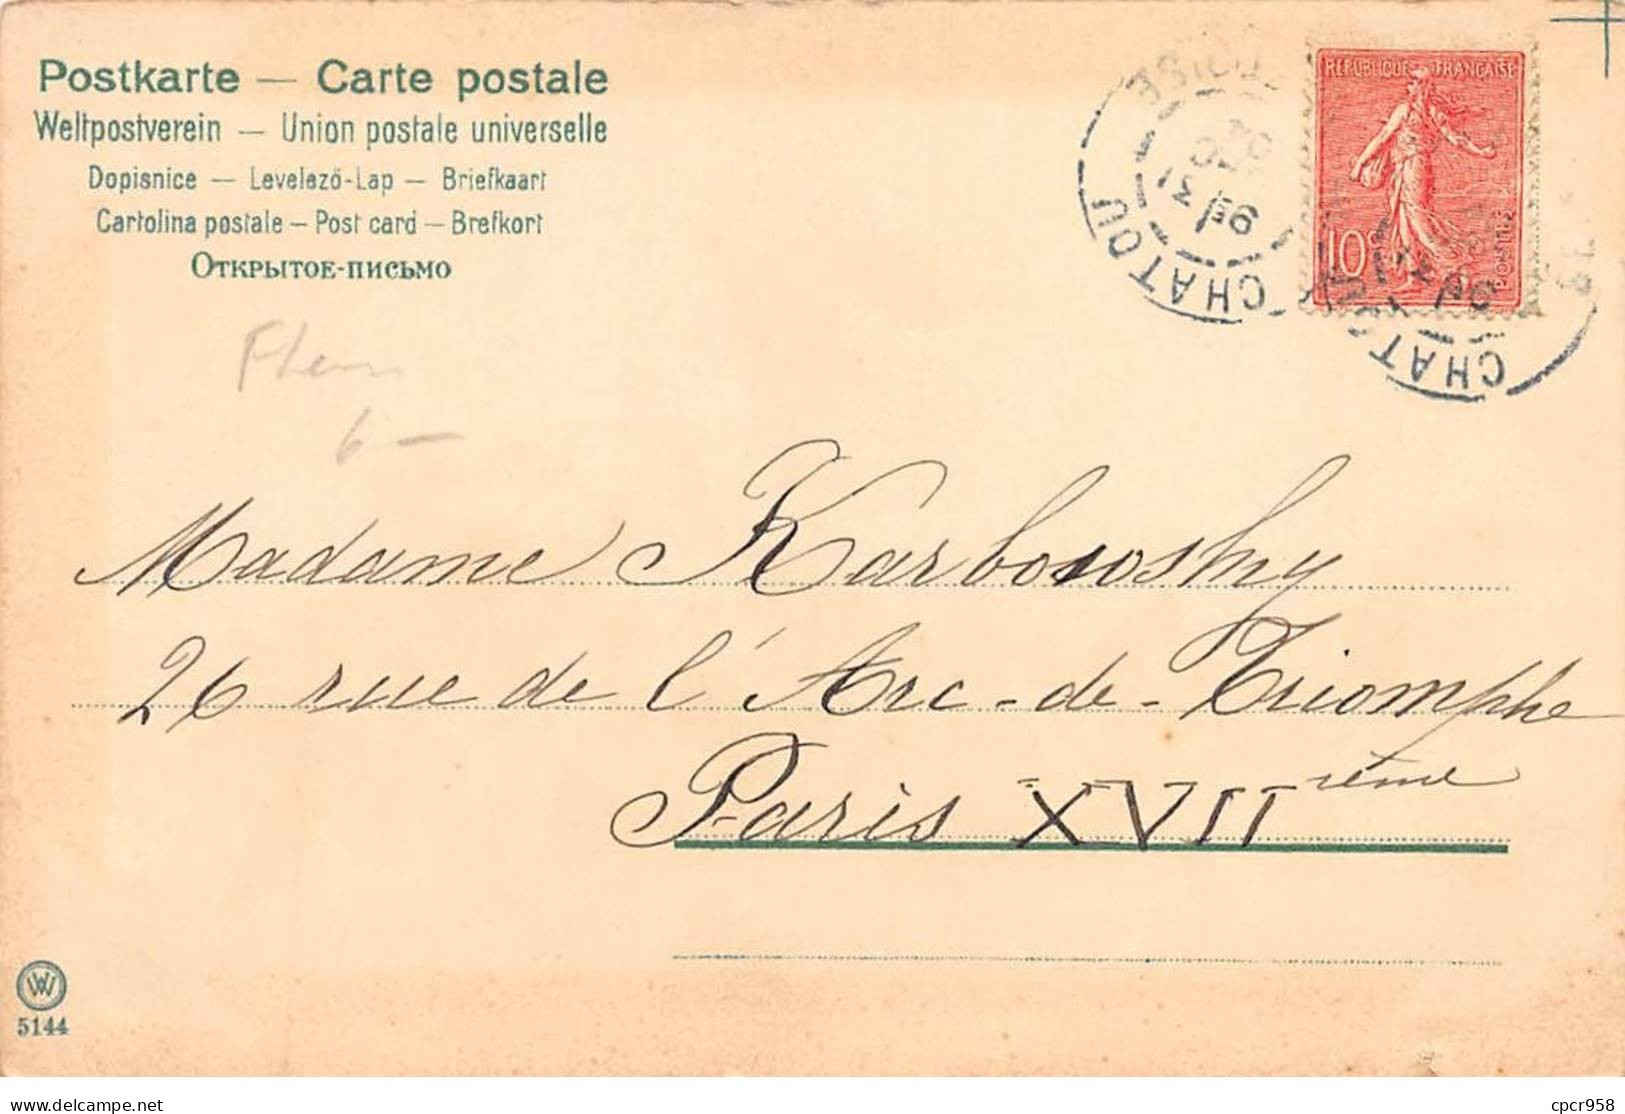 Postkarte — Carte postale
Weltpostverein — Union postale universelle
Dopisnice — Levelező-Lap — Briefkaart
Cartolina postale — Post card — Brefkort
Открытое-письмо
REPUBLIQUE FRANÇAISE
10
POSTES
CHATOU
CHATOU
6 —
Madame Karbososky
26 rue de l'Arc-de-Triomphe
Paris XVII ième
W
5144
delcampe.net
cpcr958